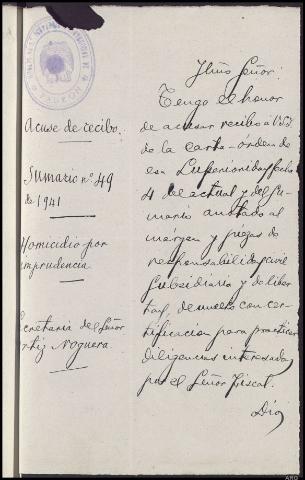 Acuse de recibo.
Sumario nº 49
de 1941
Homicidio por
imprudencia
Secretaria del Señor
Ortiz Noguera.
Ilmo Señor:
Tengo el honor
de acusar recibo a V.S.I.
de la carta-órden de
esa Superioridad fecha
4 del actual y del su-
mario anotado al
márgen y piezas de
responsabilidad civil
subsidiaria y de liber-
tad, devuelto con cer-
tificacion para practicar
diligencias interesadas
por el Señor Fiscal.
Dios